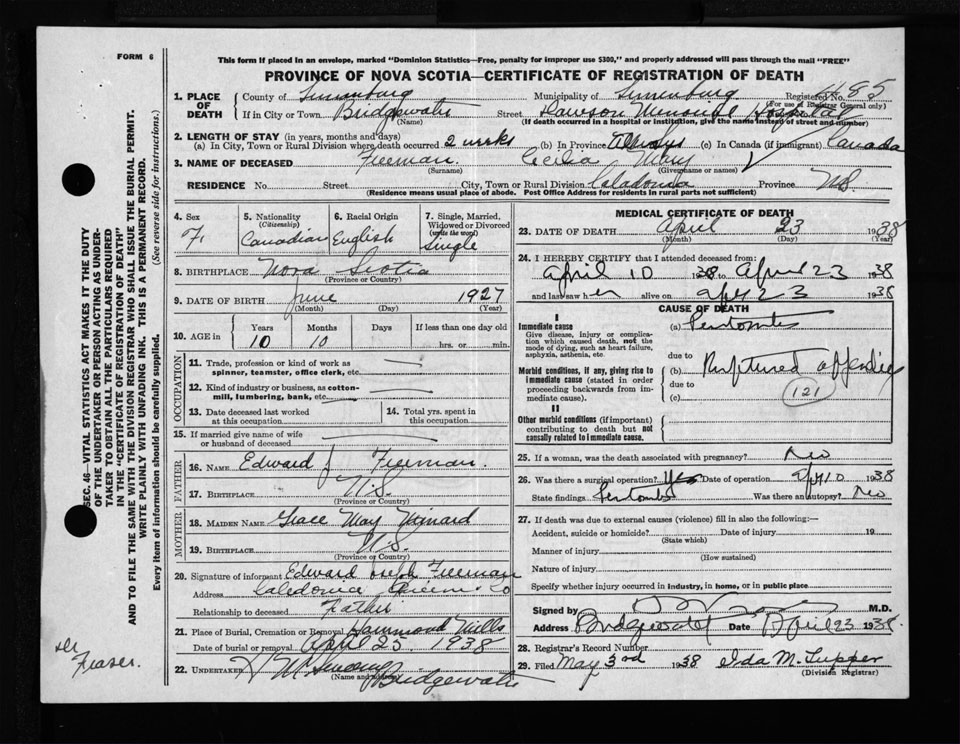 FORM 6
This form if placed in an envelope, marked "Dominion Statistics—Free, penalty for improper use $300," and properly addressed will pass through the mail "FREE"
PROVINCE OF NOVA SCOTIA—CERTIFICATE OF REGISTRATION OF DEATH
SEC. 46—VITAL STATISTICS ACT MAKES IT THE DUTY
OF THE UNDERTAKER OR PERSON ACTING AS UNDER-
TAKER TO OBTAIN ALL THE PARTICULARS REQUIRED
IN THE "CERTIFICATE OF REGISTRATION OF DEATH"
AND TO FILE THE SAME WITH THE DIVISION REGISTRAR WHO SHALL ISSUE THE BURIAL PERMIT.
WRITE PLAINLY WITH UNFADING INK. THIS IS A PERMANENT RECORD.
Every item of information should be carefully supplied. (See reverse side for instructions.)
1. PLACE OF DEATH
County of Lunenburg Municipality of Lunenburg Registered No. 85
(For use of Registrar General only)
If in City or Town Bridgewater Street Dawson Memorial Hospital
(Name) (If death occurred in a hospital or institution, give the name instead of street and number)
2. LENGTH OF STAY (in years, months and days)
(a) In City, Town or Rural Division where death occurred 2 weeks (b) In Province Always (c) In Canada (if immigrant) Canada
3. NAME OF DECEASED Freeman. Cecilia Mary
(Surname) (Given name or names)
RESIDENCE No. Street City, Town or Rural Division Caledonia Province NS.
(Residence means usual place of abode. Post Office Address for residents in rural parts not sufficient)
4. Sex
F.
5. Nationality
(Citizenship)
Canadian
6. Racial Origin
English
7. Single, Married,
Widowed or Divorced
(write the word)
Single
8. BIRTHPLACE Nova Scotia
(Province or Country)
9. DATE OF BIRTH June 1927
(Month) (Day) (Year)
10. AGE in Years Months Days If less than one day old
10 10 hrs. or min.
OCCUPATION
11. Trade, profession or kind of work as
spinner, teamster, office clerk, etc.
12. Kind of industry or business, as cotton-
mill, lumbering, bank, etc.
13. Date deceased last worked
at this occupation
14. Total yrs. spent in
this occupation
15. If married give name of wife
or husband of deceased
FATHER
16. Name Edward J Freeman.
17. Birthplace N.S.
(Province or Country)
MOTHER
18. Maiden Name Grace May
19. Birthplace N.S.
(Province or Country)
20. Signature of informant Edward Joseph Freeman
Address Caledonia Queens Co
Relationship to deceased Father
21. Place of Burial, Cremation or Removal Hammond Mills
Date of burial or removal April 25. 1938
22. UNDERTAKER Bridgewater
(Name and address)
Fraser.
MEDICAL CERTIFICATE OF DEATH
23. DATE OF DEATH April 23 1938
(Month) (Day) (Year)
24. I HEREBY CERTIFY that I attended deceased from:
April 10 1938 to April 23 1938
and last saw her alive on Apr 23 1938
CAUSE OF DEATH
I
Immediate cause
Give disease, injury or complica-
tion which caused death, not the
mode of dying, such as heart failure,
asphyxia, asthenia, etc.
(a) Peritonitis
due to
Morbid conditions, if any, giving rise to
immediate cause (stated in order
proceeding backwards from im-
mediate cause).
(b) Ruptured appendix
due to
(c) 121
II
Other morbid conditions (if important)
contributing to death but not
causally related to immediate cause.
25. If a woman, was the death associated with pregnancy? No
26. Was there a surgical operation? Yes Date of operation Apr 10 1938
State findings Peritonitis Was there an autopsy? No
27. If death was due to external causes (violence) fill in also the following:—
Accident, suicide or homicide? Date of injury 19
(State which)
Manner of injury
(How sustained)
Nature of injury
Specify whether injury occurred in industry, in home, or in public place
Signed by M.D.
Address Bridgewater Date April 23 1938.
28. Registrar's Record Number
29. Filed May 3rd 1938 Ida M. Tupper
(Division Registrar)